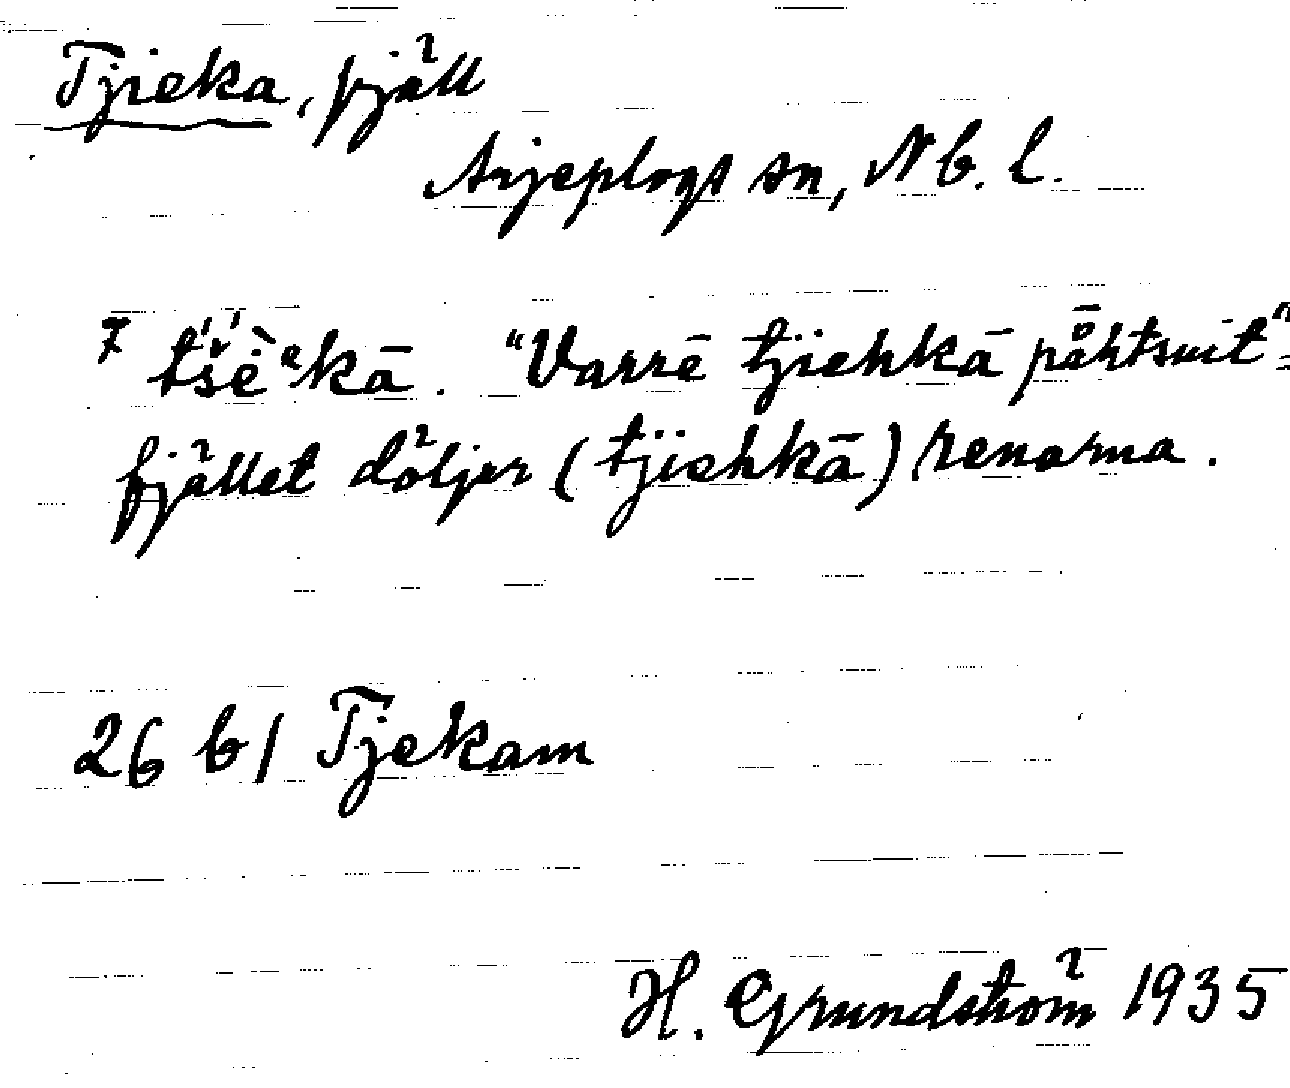 Tjieka, fjäll
Arjeplogs sn, Nb. l.
"Varrē tjiehkā påhtsuit" =
fjället döljer (tjiehkā) renarna.
26 b/ Tjekam
H. Grundström 1935